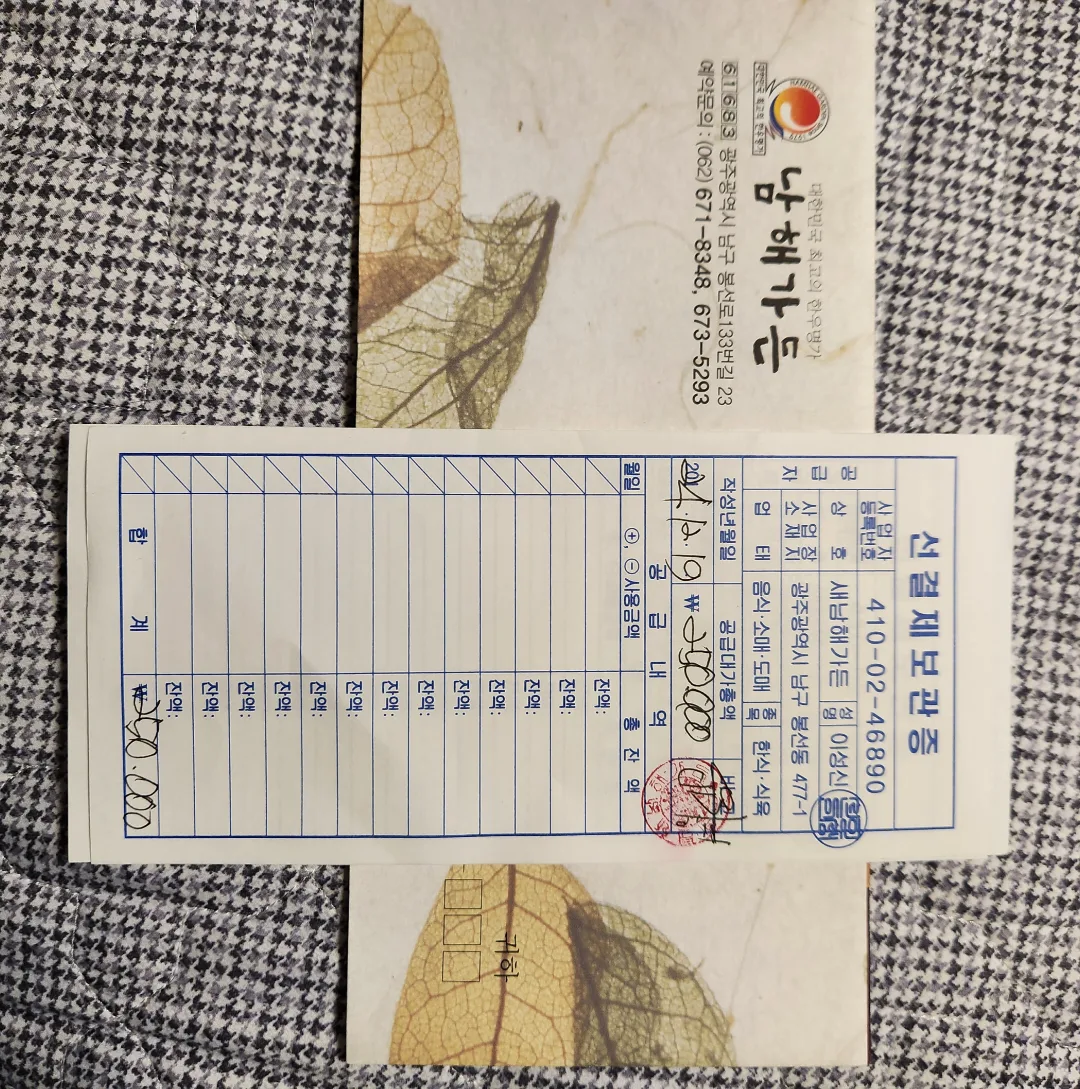 대한민국 최고의 한우명가
남해가든
NAMHAE GARDEN
SINCE 1979
대한민국 최고의 한우명가
61683 광주광역시 남구 봉선로133번길 23
예약문의 : (062) 671-8348, 673-5293
선결제보관증
공급자
사업자등록번호 410-02-46890
상호 새남해가든 성명 이성신
사업장소재지 광주광역시 남구 봉선동 477-1
업태 음식·소매·도매 종목 한식·식육
작성년월일 공급대가총액 비고
₩ 250,000
공급내역
월일 ⊕, ⊖ 사용금액 총 잔액
잔액:
잔액:
잔액:
잔액:
잔액:
잔액:
잔액:
잔액:
잔액:
잔액:
잔액:
잔액:
잔액:
합계 ₩250.000
귀하